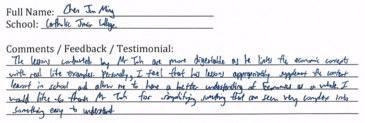 Full Name: Chen Jin Ming
School: Catholic Junior College
Comments / Feedback / Testimonial:
The lessons conducted by Mr Toh are more digestable as he links the economic concepts
with real life examples. Personally, I feel that his lessons appropriately supplement the content
learnt in school and allow me to have a better understanding of Economics as a whole. I
would like to thank Mr Toh for simplifying something that can seem very complex into
something easy to understand.